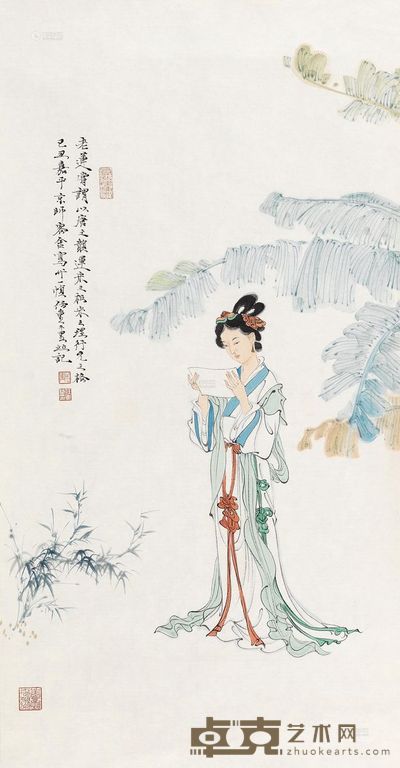 老蓮嘗謂以唐之韻運宋之板宋之理行元之格
己丑嘉平京師客舍寫此一幀任重記
卓克艺术网
www.zhuokearts.com